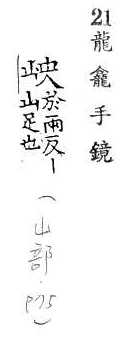 21 龍龕手鏡
於兩反丨
山足也
(山部 P75)